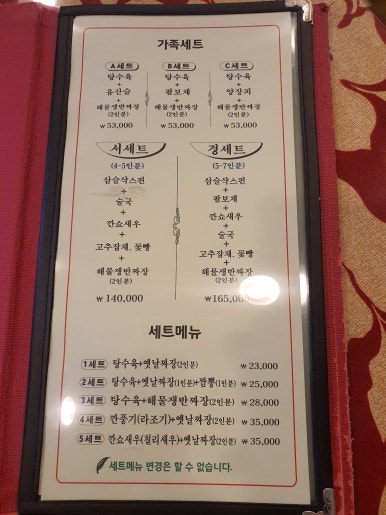 가족세트
A 세트 B 세트 C 세트
탕수육 탕수육 탕수육
+ + +
유산슬 팔보채 양장피
+ + +
해물쟁반짜장 해물쟁반짜장 해물쟁반짜장
(2인분) (2인분) (2인분)
₩ 53,000 ₩ 53,000 ₩ 53,000
서세트
(4-5인분)
삼슬삭스핀
+
술국
+
깐쇼새우
+
고추잡채, 꽃빵
+
해물쟁반짜장
(2인분)
₩ 140,000
경세트
(5-7인분)
삼슬삭스핀
+
팔보채
+
깐쇼새우
+
술국
+
고추잡채, 꽃빵
+
해물쟁반짜장
(2인분)
₩ 165,000
세트메뉴
1 세트 탕수육+옛날짜장(2인분) ₩ 23,000
2 세트 탕수육+옛날짜장(1인분)+짬뽕(1인분) ₩ 25,000
3 세트 탕수육+해물쟁반짜장(2인분) ₩ 28,000
4 세트 깐풍기(라조기)+옛날짜장(2인분) ₩ 35,000
5 세트 깐쇼새우(칠리새우)+옛날짜장(2인분) ₩ 35,000
세트메뉴 변경은 할 수 없습니다.